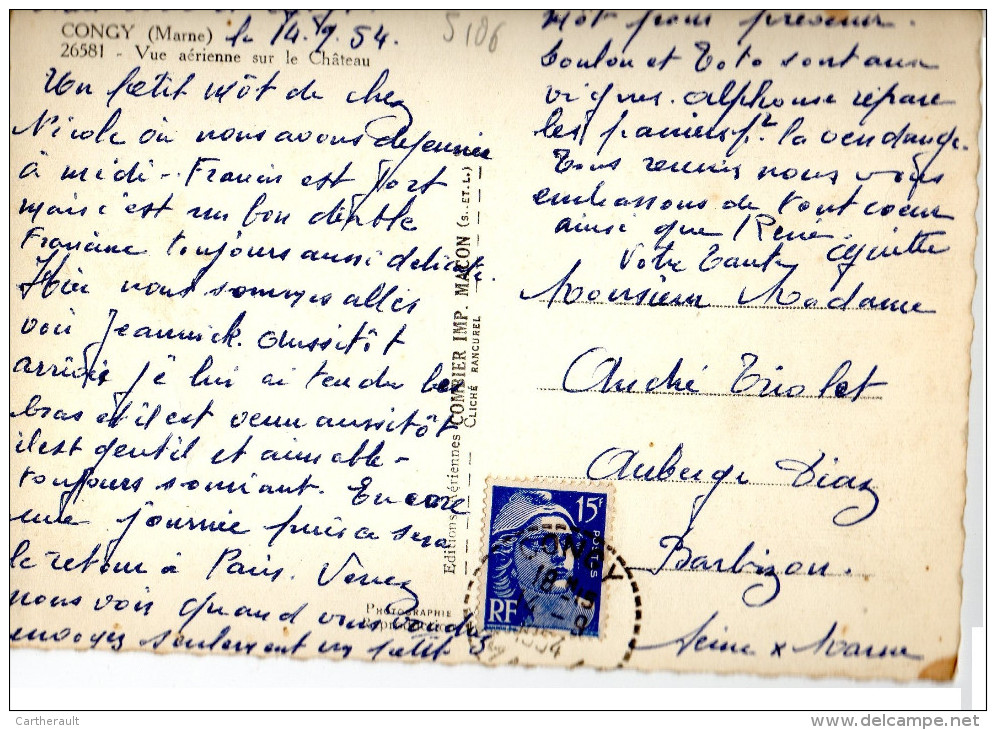 CONGY (Marne) le 14.9.54.
5106
26581 - Vue aérienne sur le Château
Un petit môt de chez
Nicole où nous avons dejeuner
à midi - Francis est fort
mais c'est un bon diable
Francine toujours aussi délicate.
Hier nous sommes allés
voir Jeannick. aussitôt
arrivés je lui ai tendu les
bras et il est venu aussitôt
il est gentil et aimable -
toujours souriant. Encore
une journée puis ce sera
le retour à Paris. Venez
nous voir quand vous voudrez
envoyez seulement un petit
môt pour prévenir.
Loulou et Toto sont aux
vignes. alphonse répare
les paniers pr la vendange.
Tous réunis nous vous
embrassons de tout coeur
ainsi que René.
Votre Tante
Editions Aériennes COMBIER IMP. MACON (S.-ET-L.)
CLICHÉ RANCUREL
PHOTOGRAPHIE
Monsieur Madame
André Triolet
Auberge Diaz
Barbizon.
Seine x Marne
15F
POSTES
RF
CONGY
18
-9
1954
Cartherault
delcampe.net